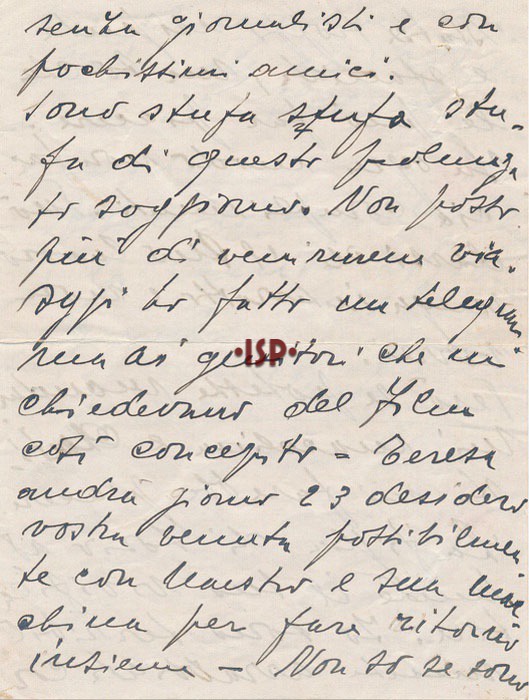 senza giornalisti e con
pochissimi amici.
Sono stufa stufa stu-
fa di questo prolunga
to soggiorno. Non posso
più di venirmene via.
oggi ho fatto un telegram
ma ai genitori che mi
·ISP·
chiedevano del film
così concepito = Teresa
andrà giorno 23 desidero
vostra venuta possibilmen
te con Maestro e sua mac
china per fare ritorno
insieme - Non so se sono